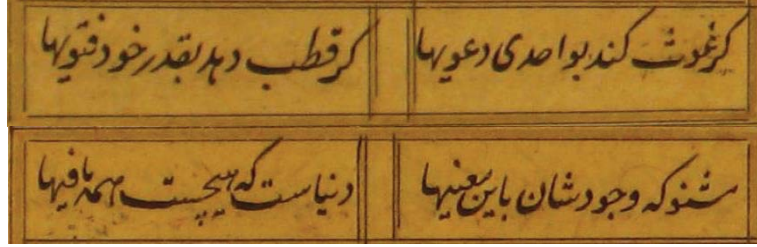 کر غوث کند بواحدی دعویها
کر قطب دهد بقدر خود فتویها
مشنو که وجودشان باین معنیها
دنیاست که هیچست همه مافیها